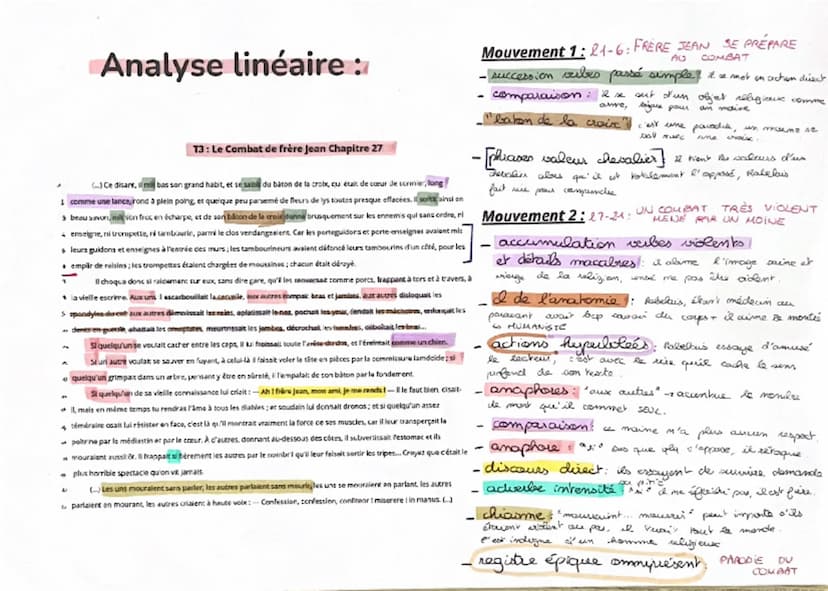 Analyse linéaire :
T3 : Le Combat de frère Jean Chapitre 27
(...) Ce disant, il mit bas son grand habit, et se saisit du bâton de la croix, qui était de cœur de cormier, long
comme une lance, rond à plein poing, et quelque peu parsemé de fleurs de lys toutes presque effacées. Il sortit ainsi en
beau savon, mit son froc en écharpe, et de son bâton de la croix donna brusquement sur les ennemis qui sans ordre, ni
enseigne, ni trompette, ni tambourin, parmi le clos vendangeaient. Car les porteguidons et porte-enseignes avaient mis
leurs guidons et enseignes à l'entrée des murs ; les tambourineurs avaient défoncé leurs tambourins d'un côté, pour les
emplir de raisins ; les trompettes étaient chargées de moussines ; chacun était dérayé.
Il choqua donc si raidement sur eux, sans dire gare, qu'il les renversait comme porcs, frappant à tors et à travers, à
la vieille escrime. Aux uns il escarbouillait la cervelle, aux autres rompait bras et jambes, aux autres disloquait les
spondyles du col, aux autres démoulait les reins, aplatissait le nez, pochait les yeux, fendait les mâchoires, enfonçait les
dents en gueule, abattait les omoplates, meurtrissait les jambes, décrochait les hanches, déboîtait les bras...
Si quelqu'un se voulait cacher entre les ceps, il lui froissait toute l'arête du dos, et l'éreintait comme un chien.
Si un autre voulait se sauver en fuyant, à celui-là il faisait voler la tête en pièces par la commissure lambdoïde ; si
quelqu'un grimpait dans un arbre, pensant y être en sûreté, il l'empalait de son bâton par le fondement.
Si quelqu'un de sa vieille connaissance lui criait : — Ah ! frère Jean, mon ami, je me rends ! — Il le faut bien, disait-
il, mais en même temps tu rendras l'âme à tous les diables ; et soudain lui donnait dronos ; et si quelqu'un assez
téméraire osait lui résister en face, c'est là qu'il montrait vraiment la force de ses muscles, car il leur transperçait la
poitrine par le médiastin et par le cœur. À d'autres, donnant au-dessous des côtes, il subvertissait l'estomac et ils
mouraient aussitôt. Il frappait si fièrement les autres par le nombril qu'il leur faisait sortir les tripes... Croyez que c'était le
plus horrible spectacle qu'on vit jamais.
(...) Les uns mouraient sans parler, les autres parlaient sans mourir, les uns se mouraient en parlant, les autres
parlaient en mourant, les autres criaient à haute voix : — Confession, confession, confiteor ! miserere ! in manus. (...)
Mouvement 1 : L1-6 : FRÈRE JEAN SE PRÉPARE
AU COMBAT
- succession verbes passé simple : il se met en action direct
- comparaison : il se sert d'un objet religieux comme
arme, pour un moine
- "bâton de la croix" : c'est une parodie, un moine se
bat avec une croix.
- [phrases valeur chevalier] : Il tient les valeurs d'un
chevalier alors qu'il est totalement l'opposé, Rabelais
fait une
Mouvement 2 : L7-21 : UN COMBAT TRÈS VIOLENT
MENÉ PAR UN MOINE
- accumulation verbes violents
et détails macabres : il abîme l'image sainte et
de la religion, censé ne pas être violent.
- CL de l'anatomie : Rabelais, étant médecin au
paravant avait bcp savoir du corps + il aime le montrer
↳ HUMANISTE
- actions hyperbolées : Rabelais essaye d'amusé
le lecteur, c'est avec le rire qu'il cache le sens
profond de son texte.
- anaphores : "aux autres" → accentue le nombre
de mort qu'il commet seul.
- comparaison : ce moine n'a plus aucun respect.
- anaphore : "si" dès que qlq s'oppose, il attaque.
- discours direct : ils essayent de survivre, demande
de pitié
- adverbe intensité : "si" il ne réfléchi pas, il est fière.
- chiasme : "mouraient... mourir" peut importe s'ils
étaient ou pas, il tuait tout la monde.
C'est indigne d'un homme religieux
- registre épique omniprésent : PARODIE DU
COMBAT